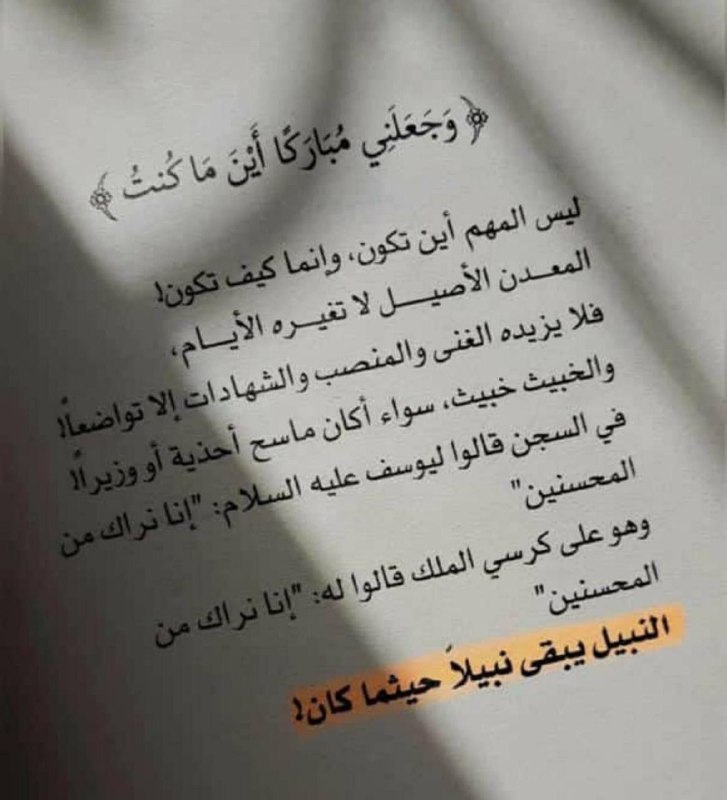 ﴿وَجَعَلَنِي مُبَارَكًا أَيْنَ مَا كُنتُ﴾
ليس المهم أين تكون، وإنما كيف تكون!
المعـدن الأصيــل لا تغيــره الأيــام،
فلا يزيده الغنى والمنصب والشهادات إلا تواضعاً!
والخبيث خبيث، سواء أكان ماسح أحذية أو وزيراً!
في السجن قالوا ليوسف عليه السلام: "إنا نراك من
المحسنين"
وهو على كرسي الملك قالوا له: "إنا نراك من
المحسنين"
النبيل يبقى نبيلاً حيثما كان!